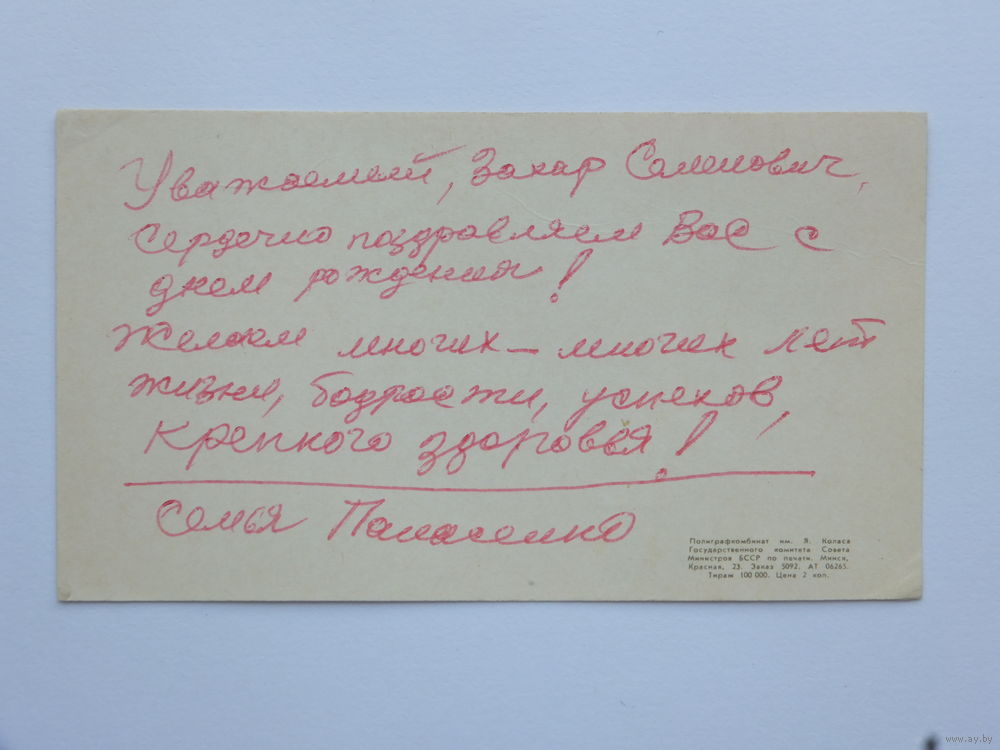 Уважаемый, Захар Семенович,
Сердечно поздравляем Вас с
днем рождения!
Желаем многих – многих лет
жизни, бодрости, успехов,
Крепкого здоровья!
Семья Панасенко
Полиграфкомбинат им. Я. Коласа
Государственного комитета Совета
Министров БССР по печати. Минск,
Красная, 23. Заказ 5092. АТ 06265.
Тираж 100 000. Цена 2 коп.
www.ay.by